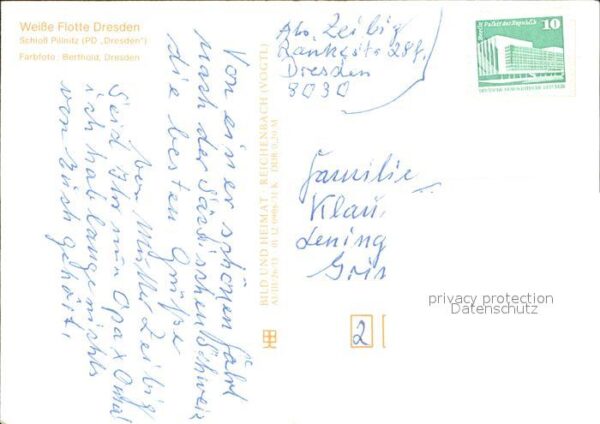 Weiße Flotte Dresden
Schloß Pillnitz (PD „Dresden")
Farbfoto: Berthold, Dresden
Von einer schönen Fahrt
nach der Sächsischen Schweiz
die besten Grüße
von Mutter Zeibig
Seid Ihr nun Opa x Oma?
ich hab lange nichts
von Euch gehört.
BILD UND HEIMAT REICHENBACH (VOGTL)
DDR 0,20 M
Abs. Zeibig
Rankestr. 28
Dresden
8030
Berlin, Palast der Republik
10
DEUTSCHE DEMOKRATISCHE REPUBLIK
Familie
Klau,
Lening
Gris
2
privacy protection
Datenschutz